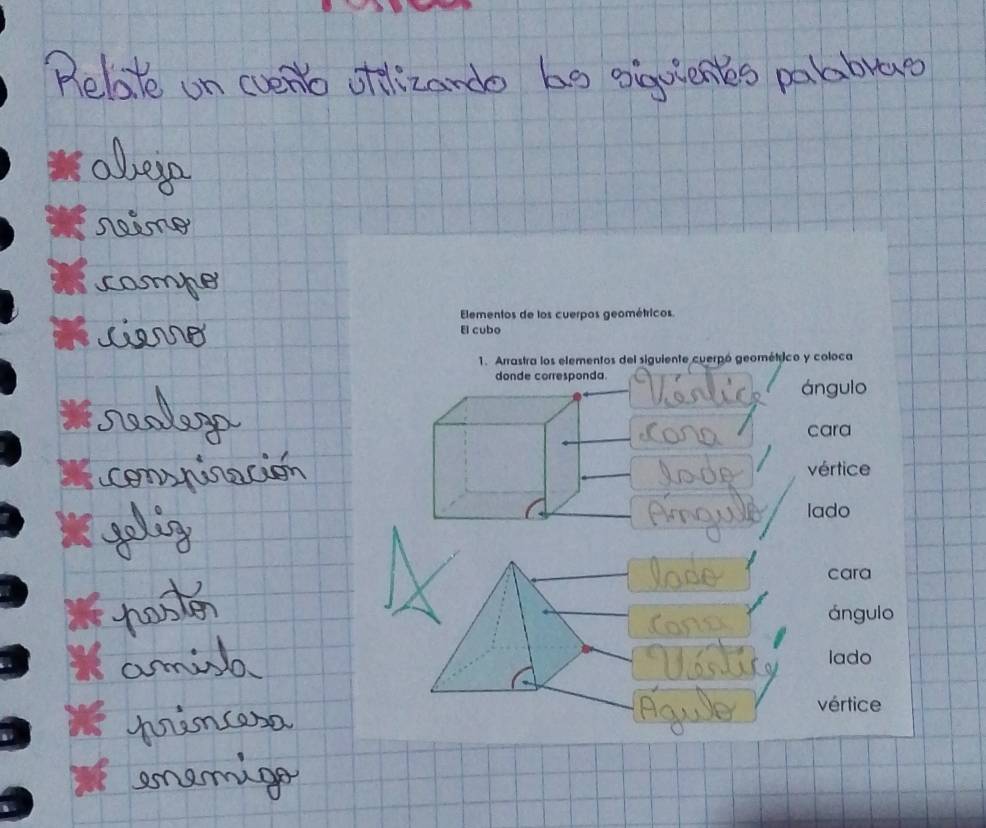 Relate un cuento utilizando las siguientes palabras
abeja
reino
campo
cierro
realeza
conspiración
feliz
pastor
amista
princesa
enemigo
Elementos de los cuerpos geométricos.
El cubo
1. Arrastra los elementos del siguiente cuerpo geométrico y coloca
donde corresponda.
Vértice ángulo
cara cara
lado vértice
Ángulo lado
lado cara
cara ángulo
Vértice lado
Águlo vértice